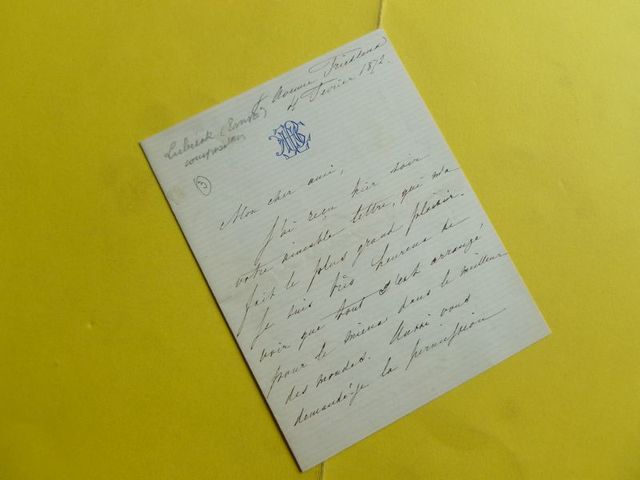 8 Avenue Friedland
4 Février 1872.
Lubeck (Ernst)
compositeur
3
Mon cher ami,
J'ai reçu hier soir
votre aimable lettre, qui m'a
fait le plus grand plaisir.
Je suis très heureux de
voir que tout s'est arrangé
pour le mieux dans le meilleur
des mondes. Aussi vous
demandé-je la permission